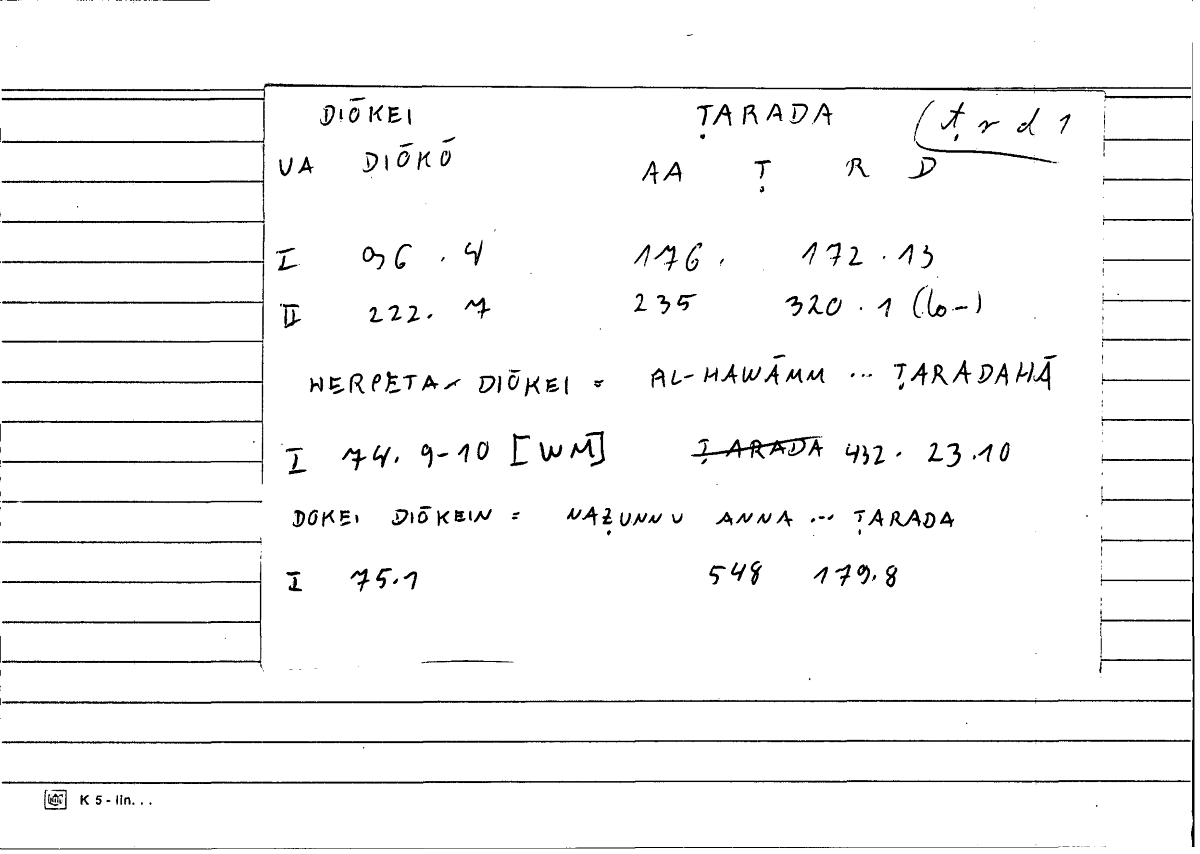 DIŌKEI ṬARADA (ṭ r d 1
VA DIŌKŌ AA Ṭ R D
I 96 . 4 176 . 172 . 13
II 222. 7 235 320 . 1 (lo-)
HERPETA DIŌKEI = AL-HAWĀMM ... ṬARADAHĀ
I 74. 9-10 [WM] ṬARADA 432. 23.10
DOKEI DIŌKEIN = NAẒUNNU ANNA ... ṬARADA
I 75.1 548 179.8
K 5 - lin. . .